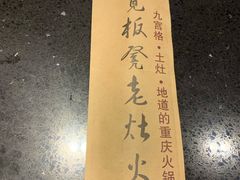 九宫格·土灶·地道的重庆火锅
板凳老灶火